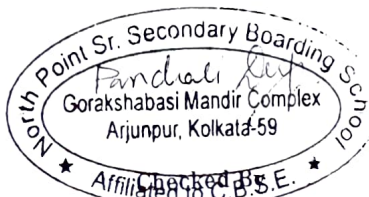 North Point Sr. Secondary Boarding School
Panchali
Gorakshabasi Mandir Complex
Arjunpur, Kolkata-59
Checked By
★ Affiliated to C.B.S.E. ★